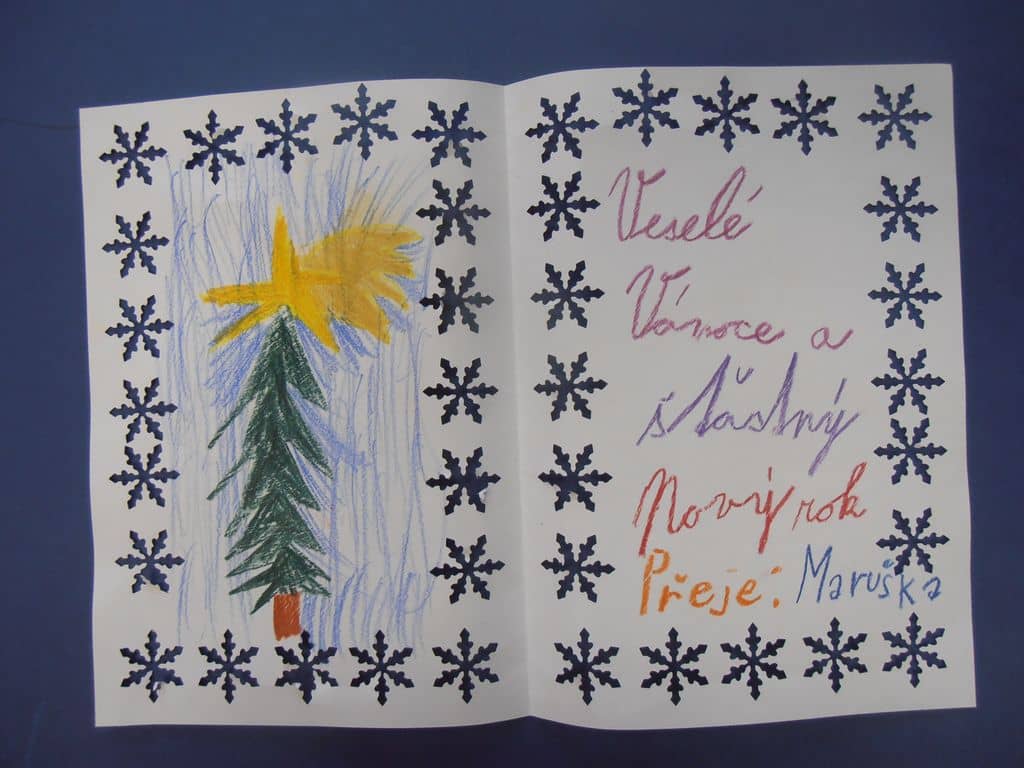 Veselé
Vánoce a
šťastný
Nový rok
Přeje: Maruška